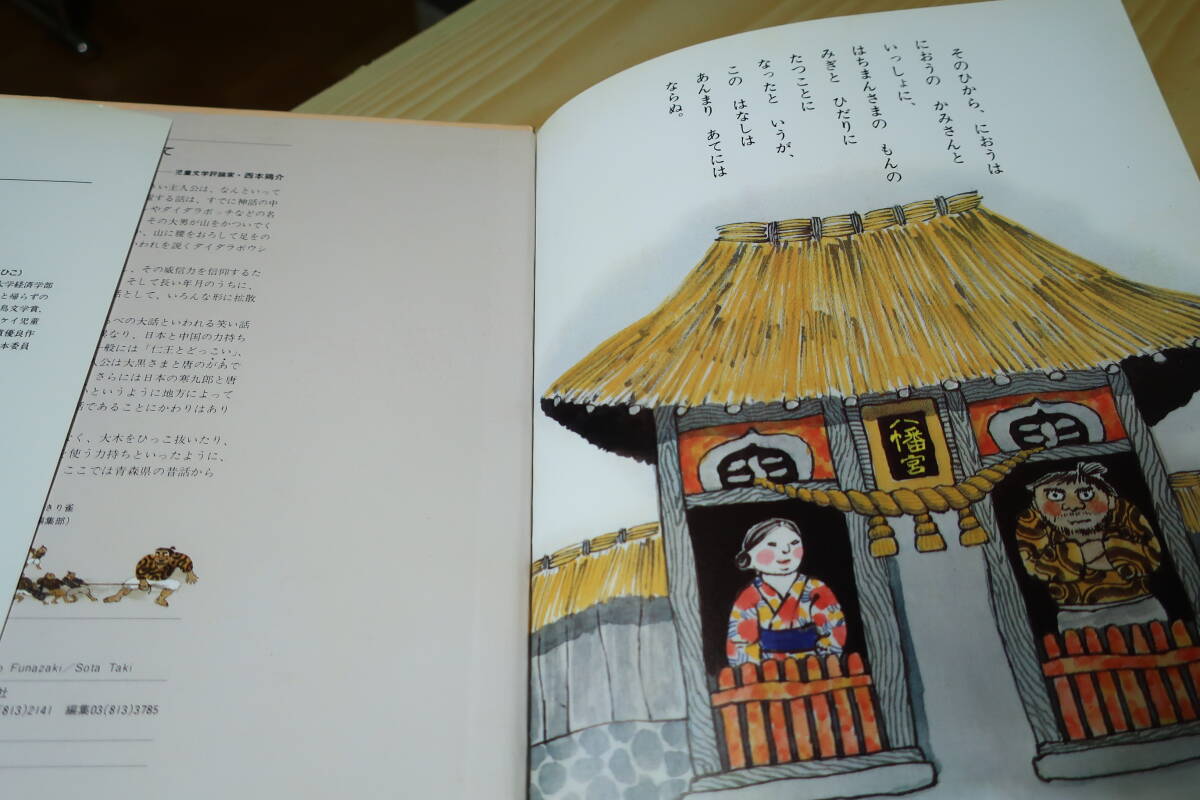 そのひから、におうは
におうの かみさんと
いっしょに、
はちまんさまの もんの
みぎと ひだりに
たつことに
なったと いうが、
この はなしは
あんまり あてには
ならぬ。
八幡宮
児童文学評論家・西本鶏介
い主人公は、なんといって
する話は、すでに神話の中
やダイダラボッチなどの名
その大男が山をかついでく
、山に腰をおろして足をの
いわれを説くダイダラボウシ
、その威信力を信仰するた
そして長い年月のうちに、
話として、いろんな形に拡散
べの大話といわれる笑い話
なり、日本と中国の力持ち
一般には「仁王とどっこい」、
人公は大黒さまと唐のがあで
さらには日本の寒九郎と唐
いというように地方によって
であることにかわりはあり
く、大木をひっこ抜いたり、
使う力持ちといったように、
ここでは青森県の昔話から
きり雀
編集部）
ひこ）
大学経済学部
と帰らずの
島文学賞、
ケイ児童
優良作
本委員
Funazaki／Sota Taki
社
(813)2141 編集03(813)3785